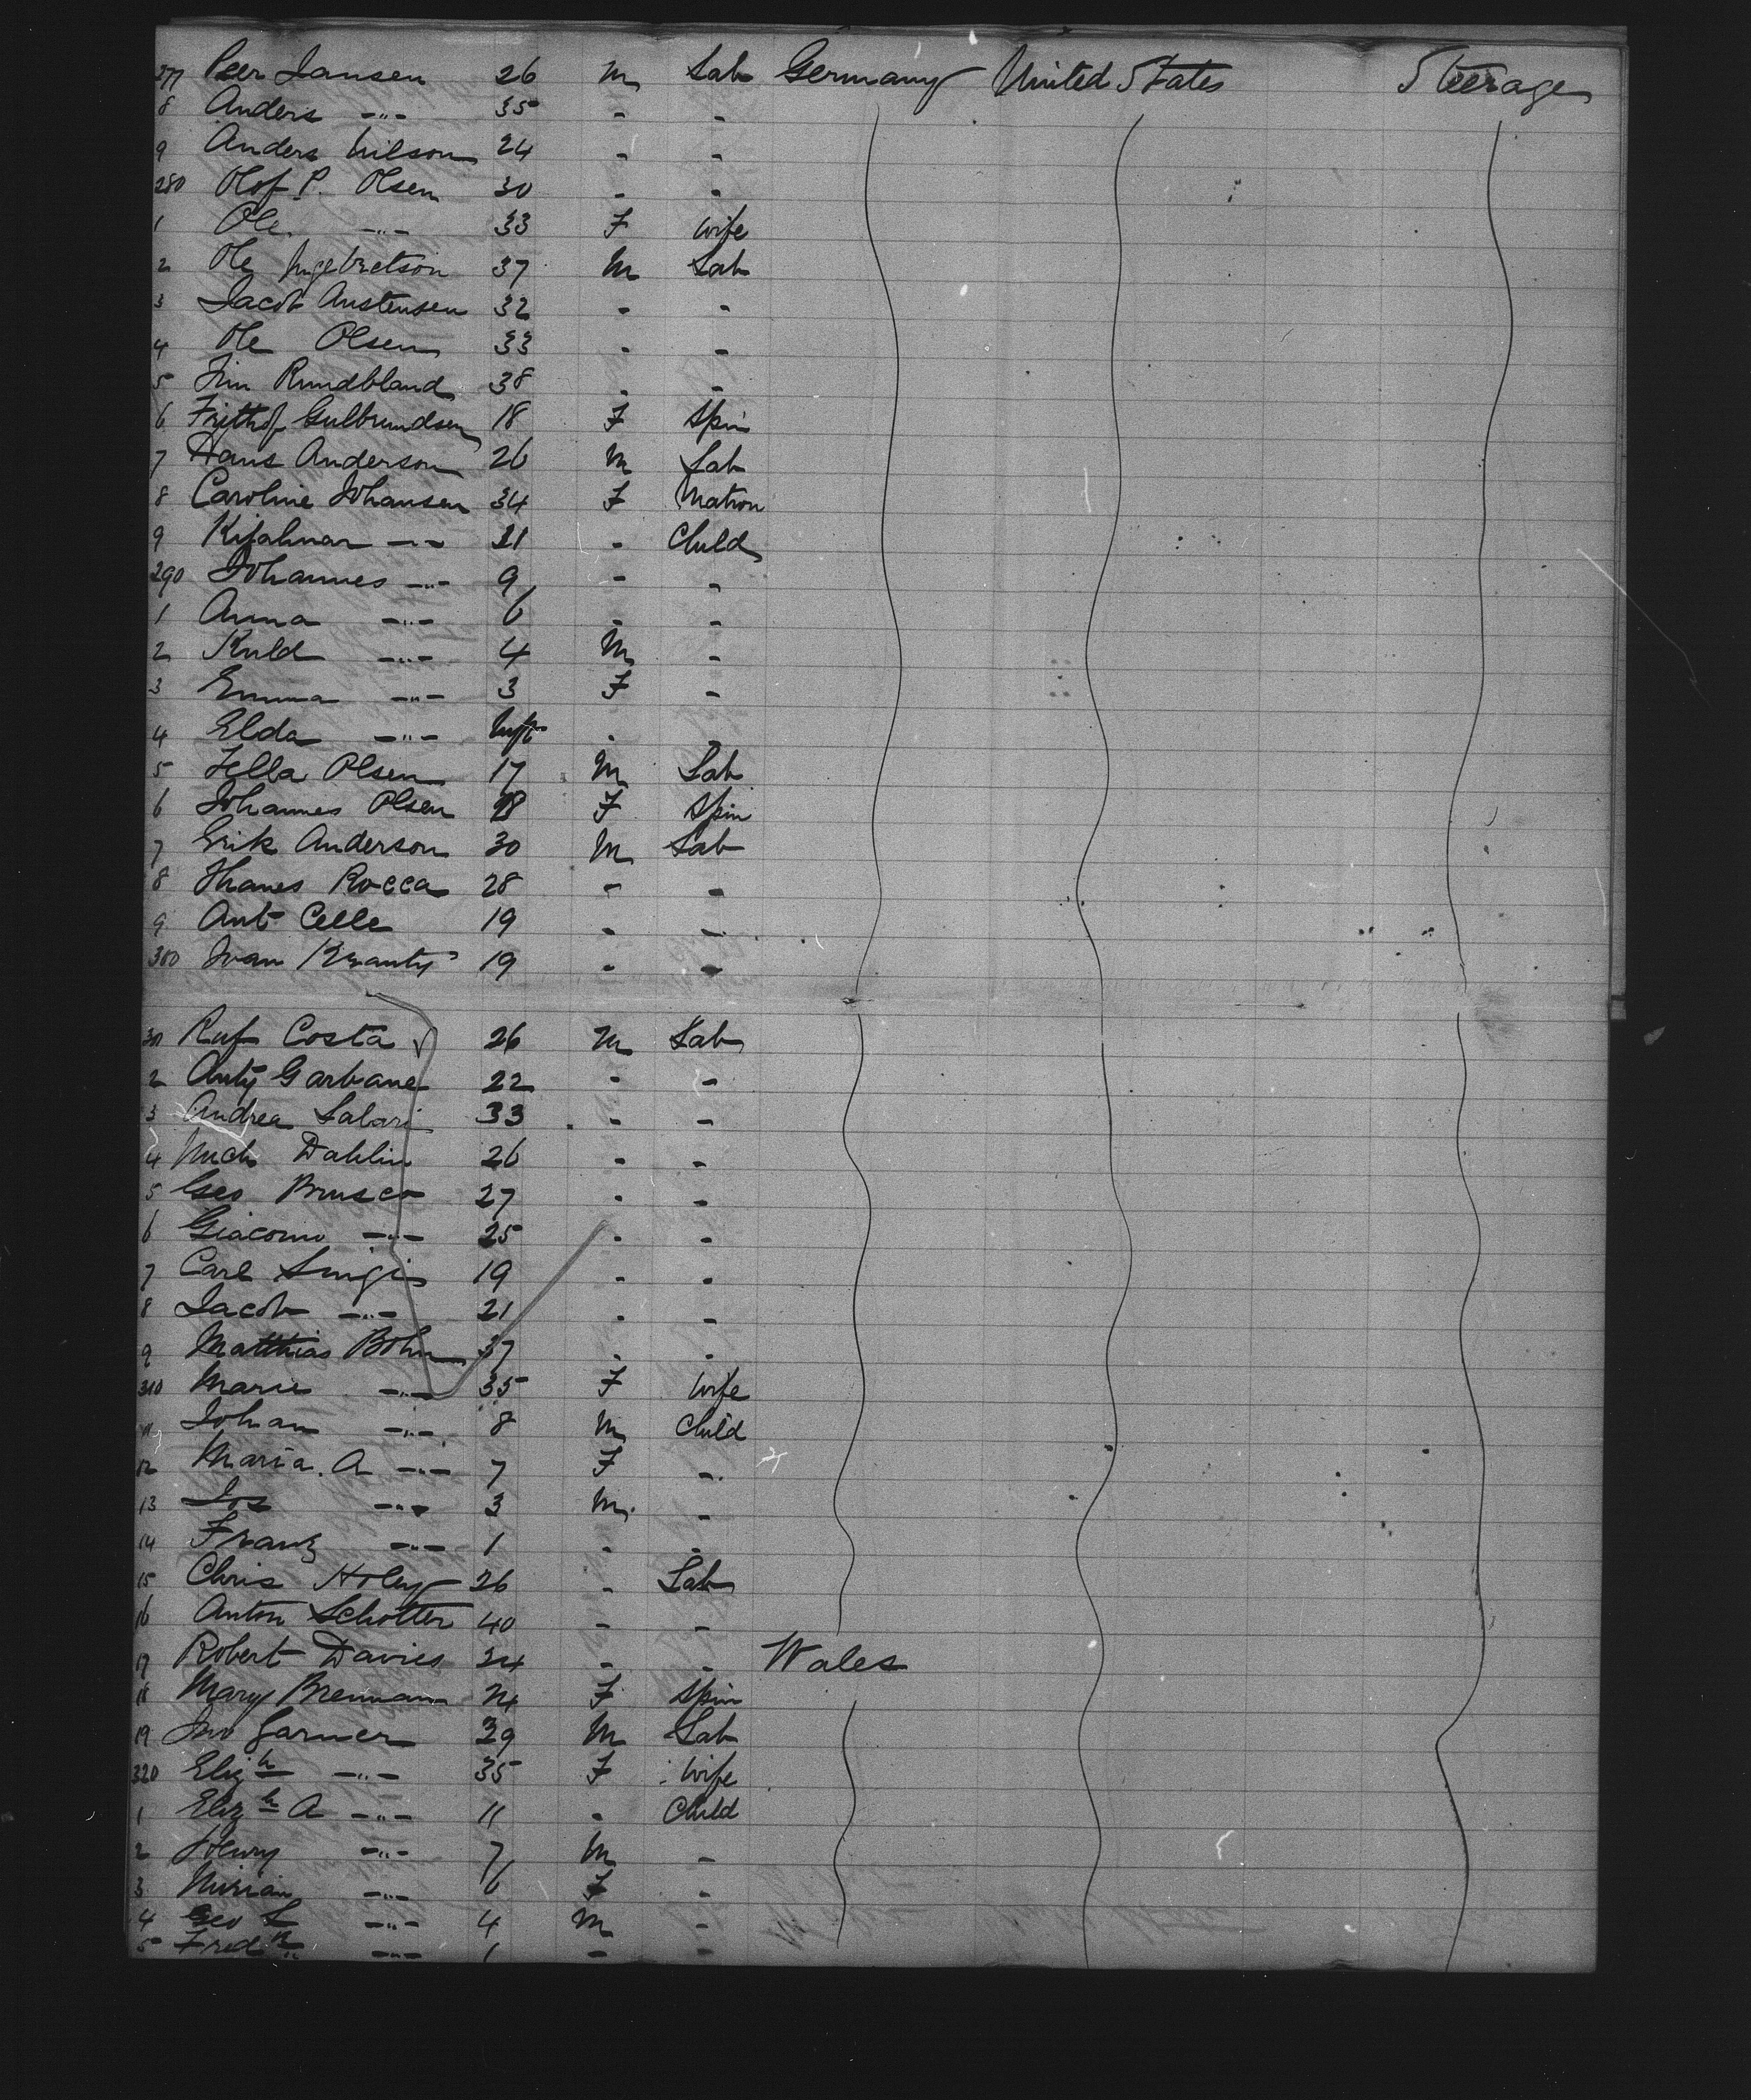 277 Peer Jansen 26 M Lab Germany United States Steerage
8 Anders -"- 35 - -
9 Anders Nilson 24 - -
280 Olof P. Olsen 30 - -
1 Ole -"- 33 F Wife
2 Ole Ingebretson 37 M Lab
3 Jacob Austensen 32 - -
4 Ole Olsen 33 - -
5 Rundbland 38 - -
6 Frithof Gulbrundsen 18 F Spin
7 Hans Anderson 26 M Lab
8 Caroline Johansen 34 F Matron
9 -"- - Child
290 Johannes -"- 9 - -
1 Anna -"- 6 - -
2 Kuld -"- 4 M -
3 Emma -"- 3 F -
4 Elda -"- Inft - -
5 Olsen 17 M Lab
6 Johannes Olsen F Spin
7 Erik Anderson 30 M Lab
8 Rocca 28 - -
9 Ant Celle 19 - -
300 Ivan 19 - -
301 Costa 26 M Lab
2 Anty Garbane 22 - -
3 Andrea Labari 33 - -
4 Mich Dahlin 26 - -
5 Geo Brusco 27 - -
6 Giacomo -"- 25 - -
7 Carl 19 - -
8 Jacob -"- 21 - -
9 Matthias Bohn 37 - -
310 Marie -"- 35 F Wife
11 Johan -"- 8 M Child
12 Maria. A -"- 7 F -
13 Jos -"- 3 M -
14 Franz -"- 1 - -
15 Chris Holey 26 - Lab
16 Anton Schotter 40 - -
17 Robert Davies 24 - - Wales
18 Mary Brennan 24 F Spin
19 Jno Garner 39 M Lab
320 Elizh -"- 35 F Wife
1 Elizh A -"- 11 - Child
2 Henry -"- 7 M -
3 Miriam -"- 6 F -
4 Geo L -"- 4 M -
5 Fredk -"- 1 - -